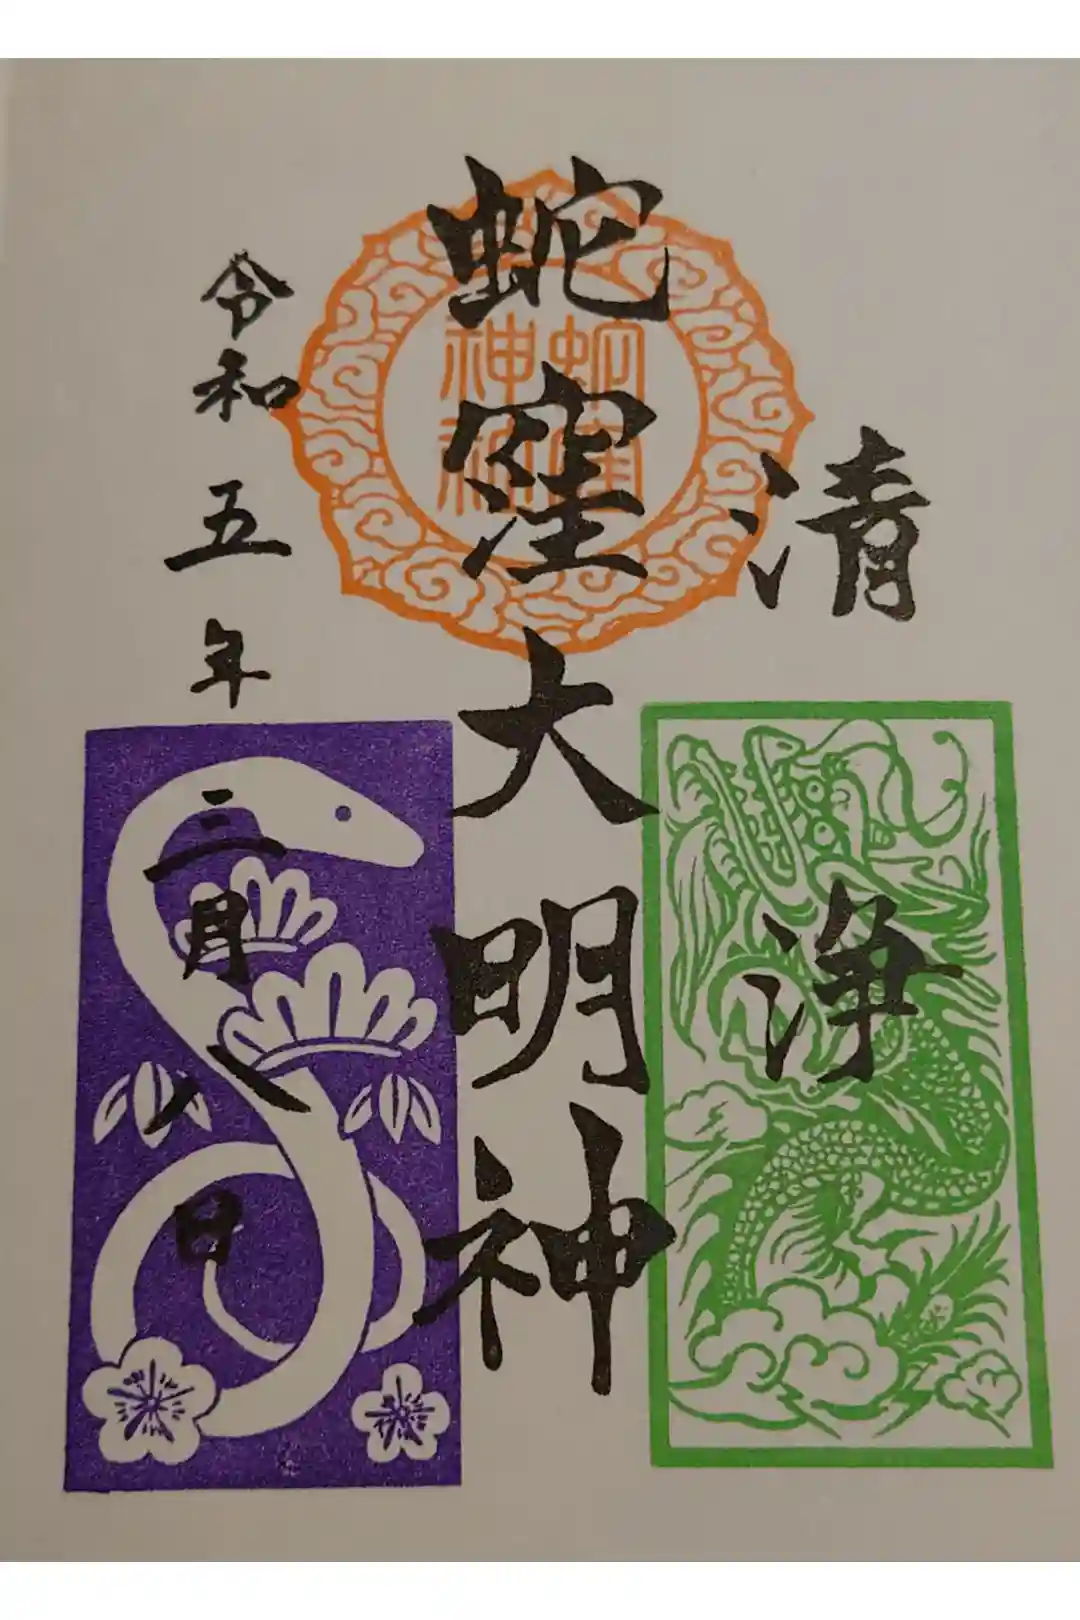 清浄
蛇窪大明神
蛇窪
神社
令和五年三月八日